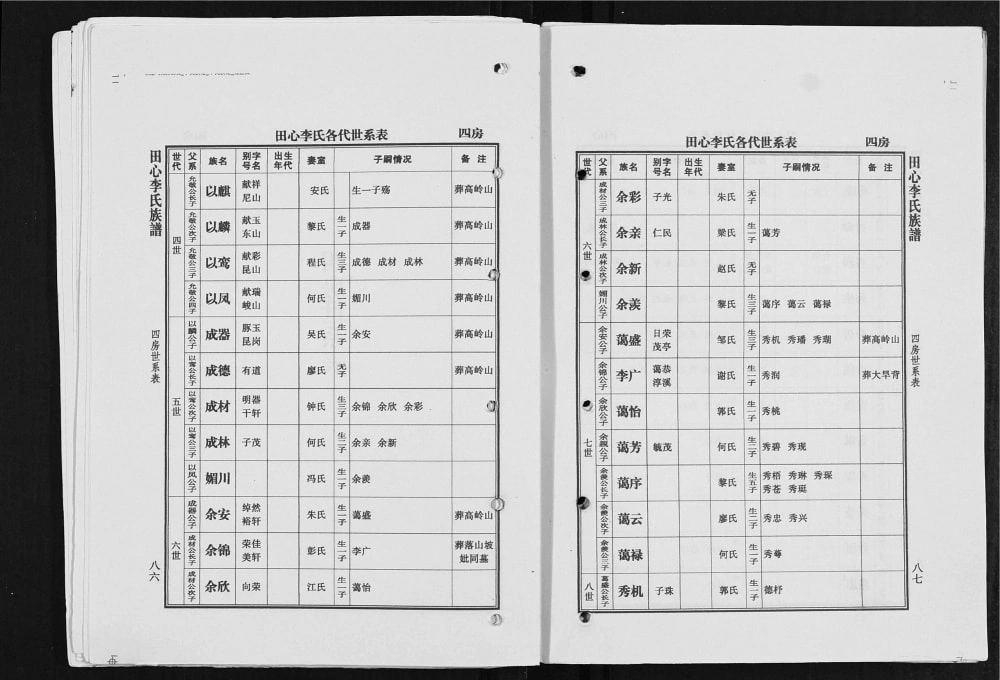 田心李氏各代世系表 四房
田心李氏族譜
四房世系表
八六
世代 父系 族名 别号 字名 出生年代 妻室 子嗣情况 备注
四世
允敏公长子 以麒 献祥 尼山 安氏 生一子殇 葬高岭山
允敏公次子 以麟 献玉 东山 黎氏 生一子 成器 葬高岭山
允敏公三子 以鸾 献彩 昆山 程氏 生三子 成德 成材 成林 葬高岭山
允敏公四子 以凤 献瑞 峻山 何氏 生一子 媚川 葬高岭山
五世
以麟公子 成器 豚玉 昆岗 吴氏 生一子 余安 葬高岭山
以鸾公长子 成德 有道 廖氏 无子 葬高岭山
以鸾公次子 成材 明器 干轩 钟氏 生三子 余锦 余欣 余彩
以鸾公三子 成林 子茂 何氏 生二子 余亲 余新
以凤公子 媚川 冯氏 生一子 余羡
六世
成器公子 余安 绰然 裕轩 朱氏 生一子 蔼盛 葬高岭山
成材公长子 余锦 荣佳 美轩 彭氏 生一子 李广 葬落山坡 妣同墓
成材公次子 余欣 向荣 江氏 生一子 蔼怡
田心李氏各代世系表 四房
田心李氏族譜
四房世系表
八七
世代 父系 族名 别号 字名 出生年代 妻室 子嗣情况 备注
六世
成材公三子 余彩 子光 朱氏 无子
成林公长子 余亲 仁民 梁氏 生一子 蔼芳
成林公次子 余新 赵氏 无子
媚川公子 余羡 黎氏 生三子 蔼序 蔼云 蔼禄
七世
余安公子 蔼盛 日荣 茂亭 邹氏 生三子 秀机 秀璠 秀瑚 葬高岭山
余锦公子 李广 蔼恭 淳溪 谢氏 生一子 秀润 葬大旱背
余欣公子 蔼怡 郭氏 生一子 秀桃
余亲公子 蔼芳 毓茂 何氏 生二子 秀碧 秀现
余羡公长子 蔼序 黎氏 生五子 秀梧 秀琳 秀琛 秀苍 秀珽
余羡公次子 蔼云 廖氏 生二子 秀忠 秀兴
余羡公三子 蔼禄 何氏 生一子 秀蕚
八世
蔼盛公长子 秀机 子珠 郭氏 生一子 德杼